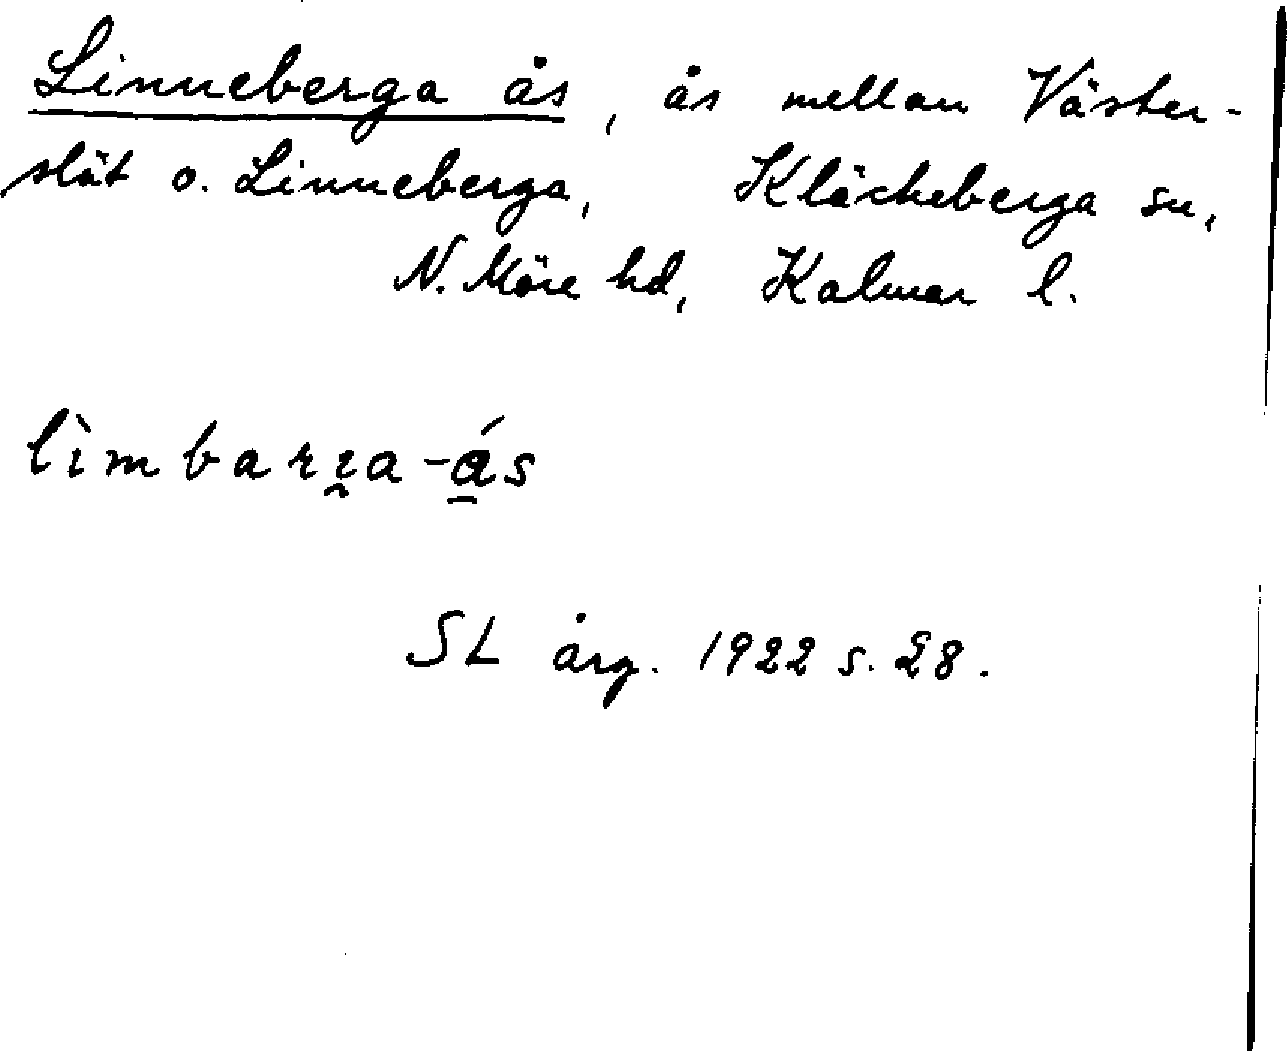 Linneberga ås, ås mellan Väster-
slät o. Linneberga, Kläckeberga sn,
N. Möre hd, Kalmar l.
SL årg. 1922 s. 28.